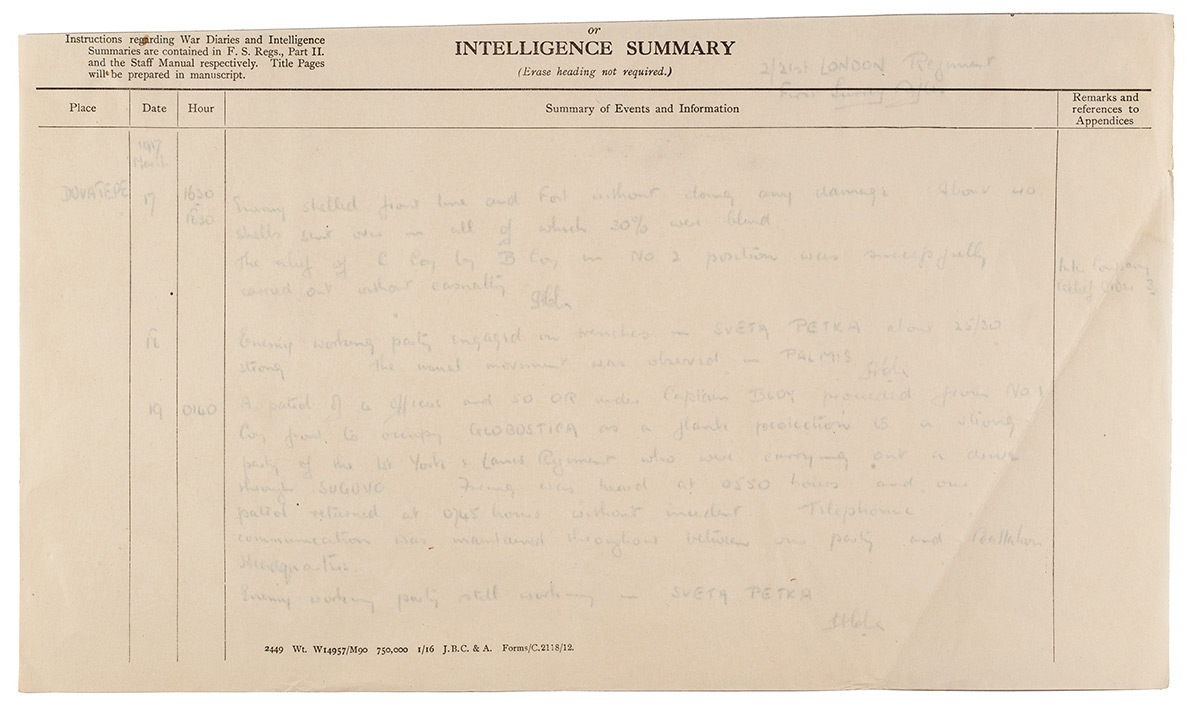 or
Instructions regarding War Diaries and Intelligence
Summaries are contained in F. S. Regs., Part II.
and the Staff Manual respectively. Title Pages
will be prepared in manuscript.
INTELLIGENCE SUMMARY
(Erase heading not required.)
2/21st LONDON Regiment
First Surrey Rifles
Place
Date
Hour
Summary of Events and Information
Remarks and
references to
Appendices
1917
March
DOVATEPE 17 1630
Enemy shelled front line and Fort without doing any damage. About
shells sent over in all of which 20% were blind
The relief of C Coy by B Coy in No 2 position was successfully
carried out without casualty
Inter Company
Relief Order
Enemy working party engaged in trenches in SVETA PETKA about 25/30
strong The usual movement was observed in PALMIS
19 0140
A patrol of 4 officers and 50 OR under Captain BURY proceeded from No 1
Coy front to occupy GLOBOSTICA as a flank protection to a strong
party of the 1st York & Lancs Regiment who were carrying out a drive
through Firing was heard at 0350 hours and our
patrol returned at 0745 hours without incident. Telephonic
communication was maintained throughout between our party and Battalion
Headquarters.
Enemy working party still working in SVETA PETKA
2449 Wt. W14957/M90 750,000 1/16 J.B.C. & A. Forms/C.2118/12.